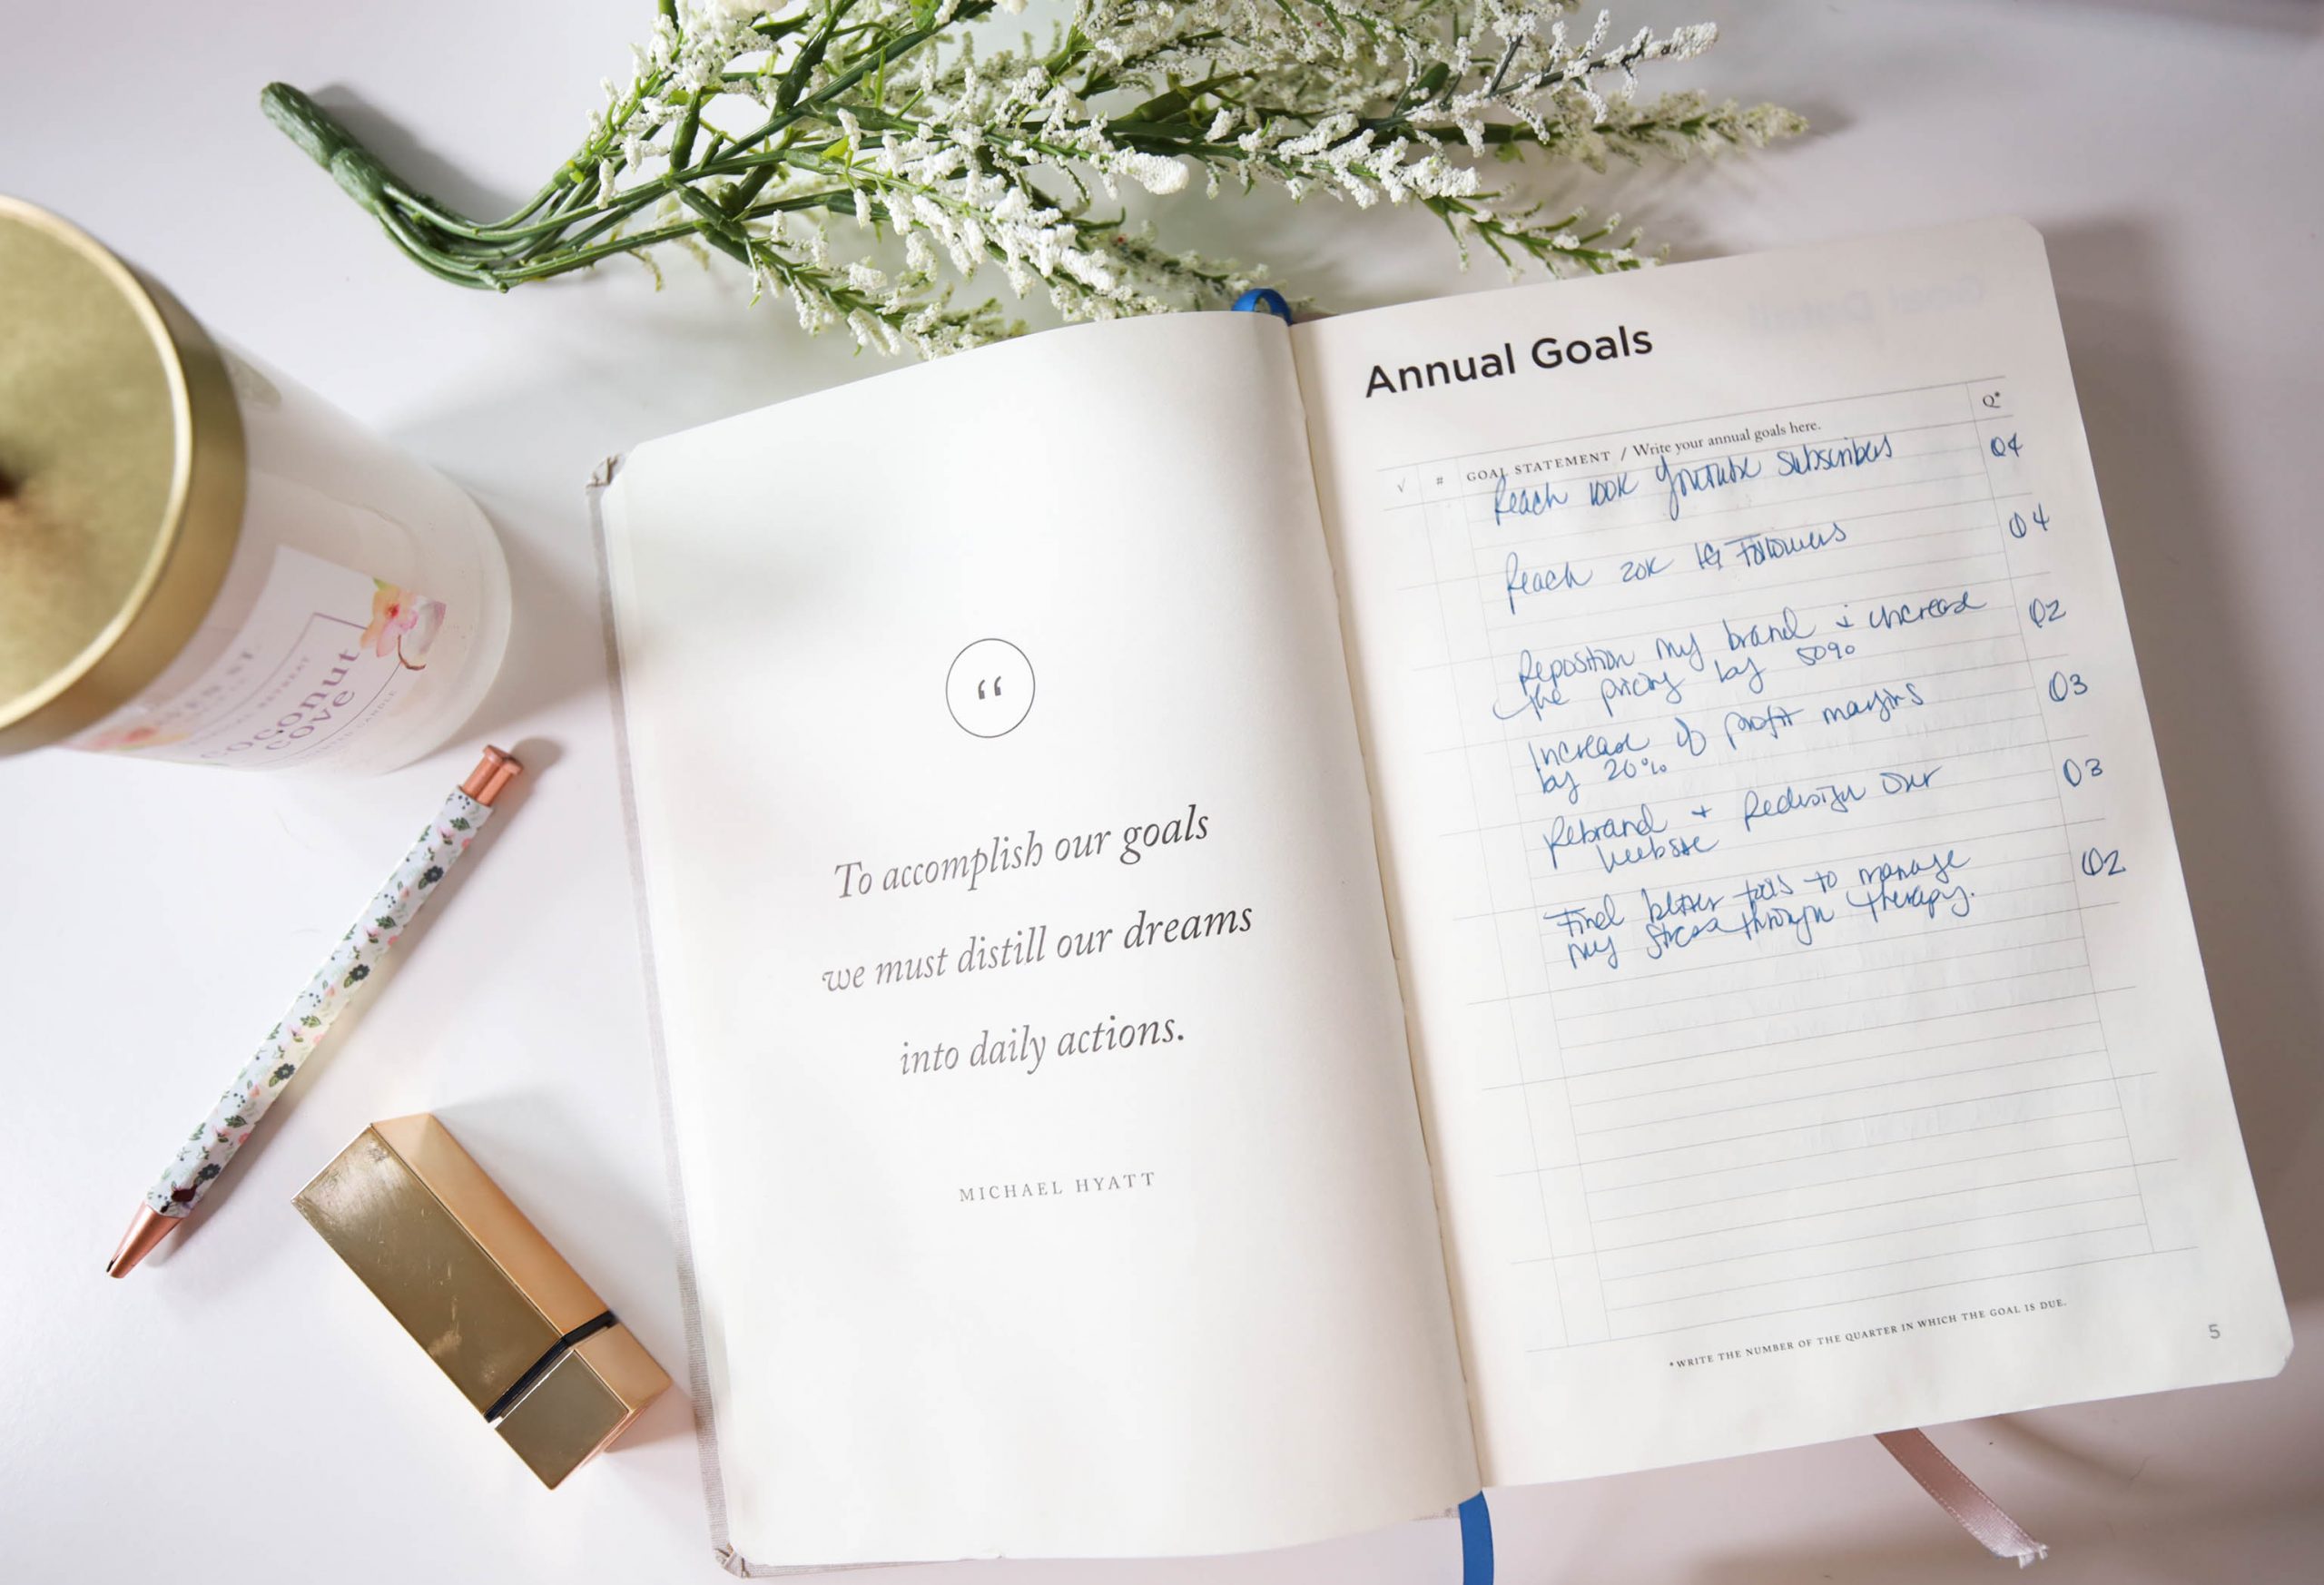 COCONUT
COVE
“
To accomplish our goals
we must distill our dreams
into daily actions.
MICHAEL HYATT
Annual Goals
√ # GOAL STATEMENT / Write your annual goals here. Q*
Reach 100K YouTube Subscribers Q4
Reach 20K IG Followers Q4
Reposition my brand & increase Q2
the pricing by 50%
Increase of profit margins Q3
by 20%
Rebrand + Redesign our Q3
website
Find better tools to manage Q2
my stress through therapy.
*WRITE THE NUMBER OF THE QUARTER IN WHICH THE GOAL IS DUE.
5